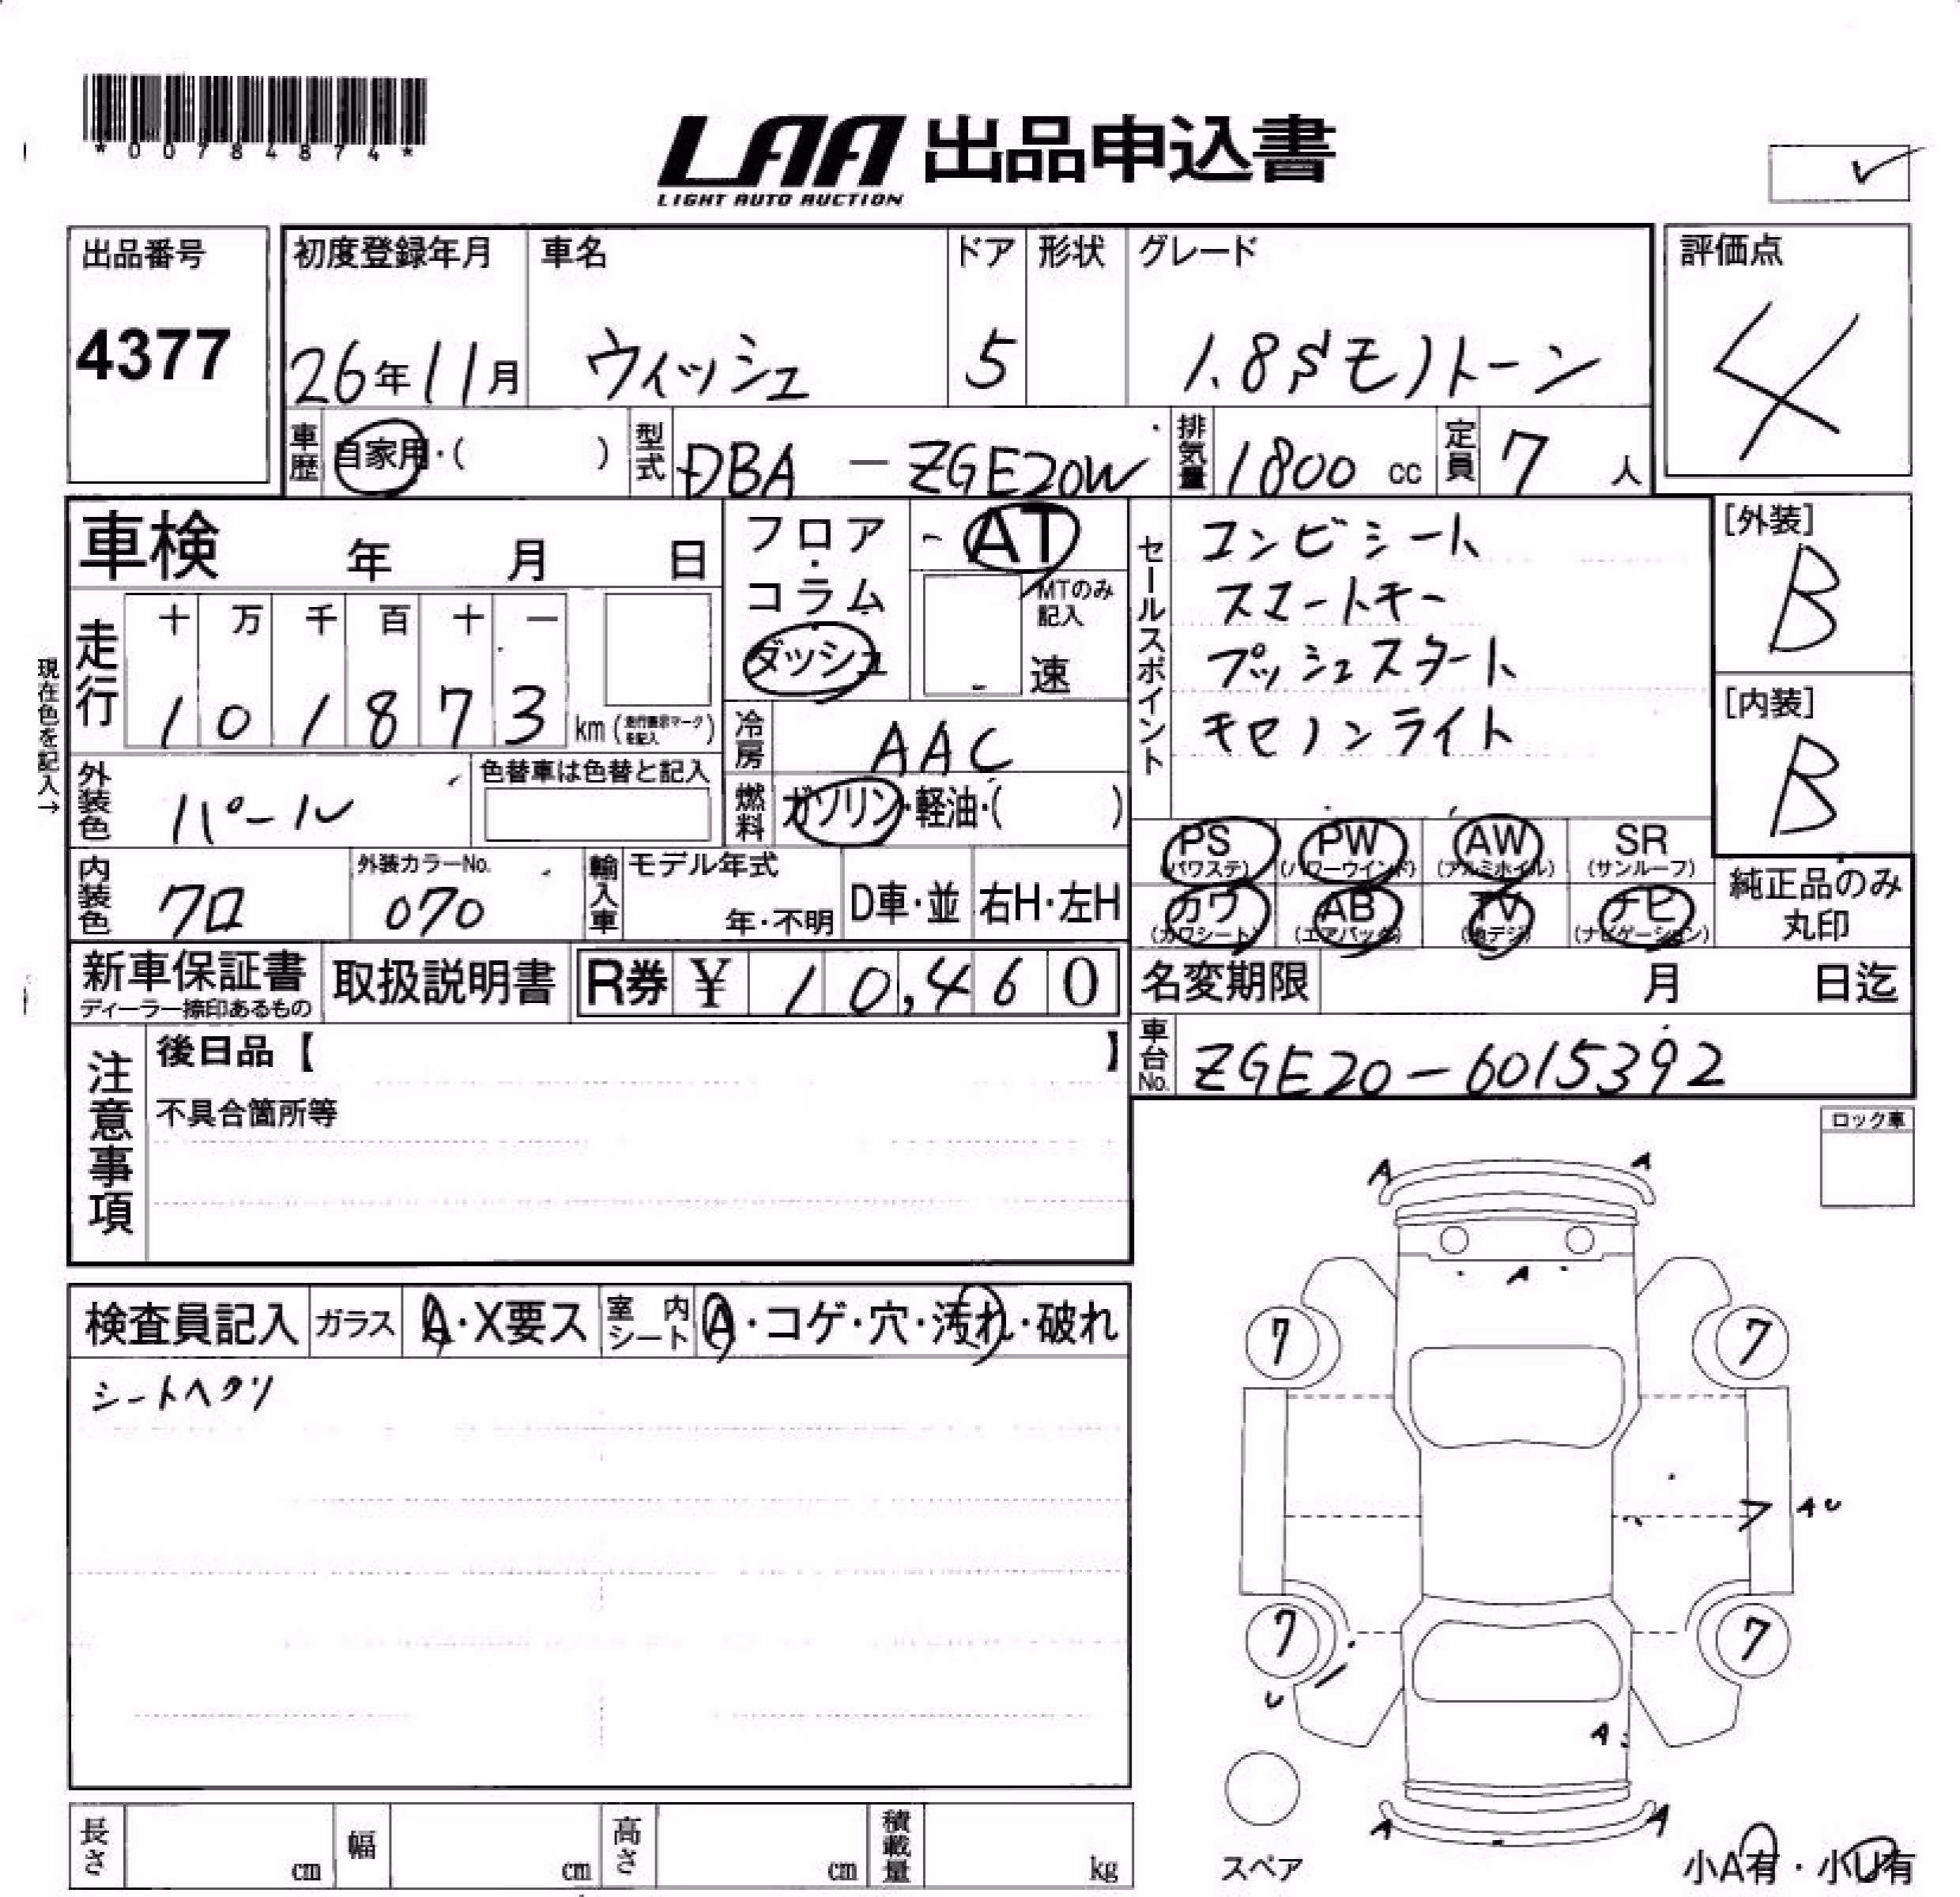 *00784874*
LAA 出品申込書
LIGHT AUTO AUCTION
出品番号
4377
初度登録年月
26年11月
車名
ウィッシュ
ドア
5
形状
グレード
1.8Sモノトーン
評価点
4
車歴
自家用・( )
型式
DBA － ZGE20W
排気量
1800 cc
定員
7 人
車検 年 月 日
現在色を記入→
走行
十 万 千 百 十 一
1 0 1 8 7 3
km (走行表示マークを記入)
フロア
・
コラム
・
ダッシュ
AT
MTのみ
記入
速
冷房
AAC
燃料
ガソリン・軽油・( )
セールスポイント
コンビシート
スマートキー
プッシュスタート
キセノンライト
[外装]
B
[内装]
B
外装色
パール
色替車は色替と記入
内装色
クロ
外装カラーNo.
070
輸入車
モデル年式
年・不明
D車・並
右H・左H
PS
(パワステ)
PW
(パワーウインド)
AW
(アルミホイル)
SR
(サンルーフ)
カワ
(カワシート)
AB
(エアバック)
TV
(地デジ)
ナビ
(ナビゲーション)
純正品のみ
丸印
新車保証書
ディーラー捺印あるもの
取扱説明書
R券 ¥ 10,460
名変期限 月 日迄
車台No.
ZGE20-6015392
注意事項
後日品【 】
不具合箇所等
ロック車
検査員記入
ガラス
A・X要ス
室内
シート
A・コゲ・穴・汚れ・破れ
シートヘタリ
A A
A
7 7
A U
7 7
U
A
A A
スペア
小A有・小U有
長さ cm
幅 cm
高さ cm
積載量 kg